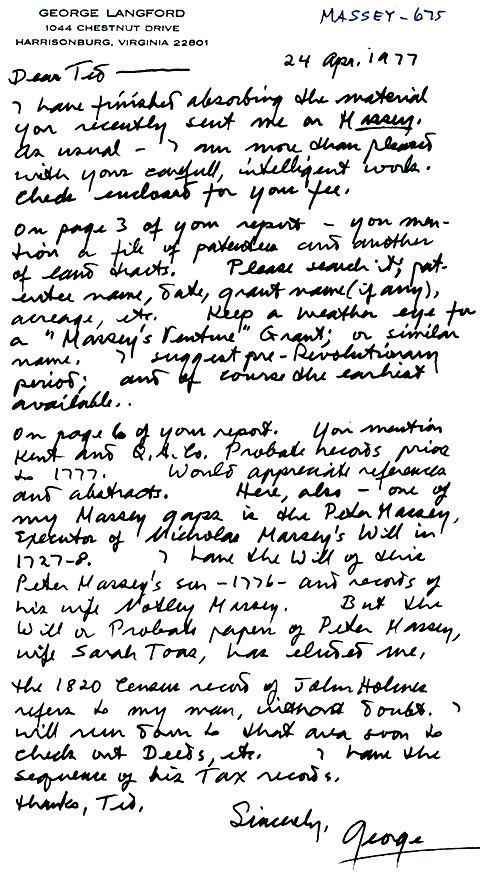 GEORGE LANGFORD
1044 CHESTNUT DRIVE
HARRISONBURG, VIRGINIA 22801
MASSEY-675
24 Apr. 1977
Dear Ted
I have finished absorbing the material
you recently sent me on Massey.
As usual - I am more than pleased
with your carefull, intelligent work.
Check enclosed for your fee.
On page 3 of your report - you men-
tion a file of patentees and another
of land tracts. Please search it; pat-
entee name, date, grant name (if any),
acreage, etc. Keep a weather eye for
a "Massey's Venture" Grant; or similar
name. I suggest pre-Revolutionary
period; and of course the earliest
available..
On page 6 of your report. You mention
Kent and Q.A.Co. Probate records prior
to 1777. Would appreciate references
and abstracts. Here, also - one of
my Massey gaps is the Peter Massey,
Executor of Nicholas Massey's Will in
1727-8. I have the Will of this
Peter Massey's son -1776- and records of
his wife Notley Massey. But the
Will or Probate papers of Peter Massey,
wife Sarah Toas, has eluded me.
The 1820 Census record of John Holmes
refers to my man, without doubt. I
will run down to that area soon to
check out Deeds, etc. I have the
sequence of his Tax records.
Thanks, Ted.
Sincerely,
George